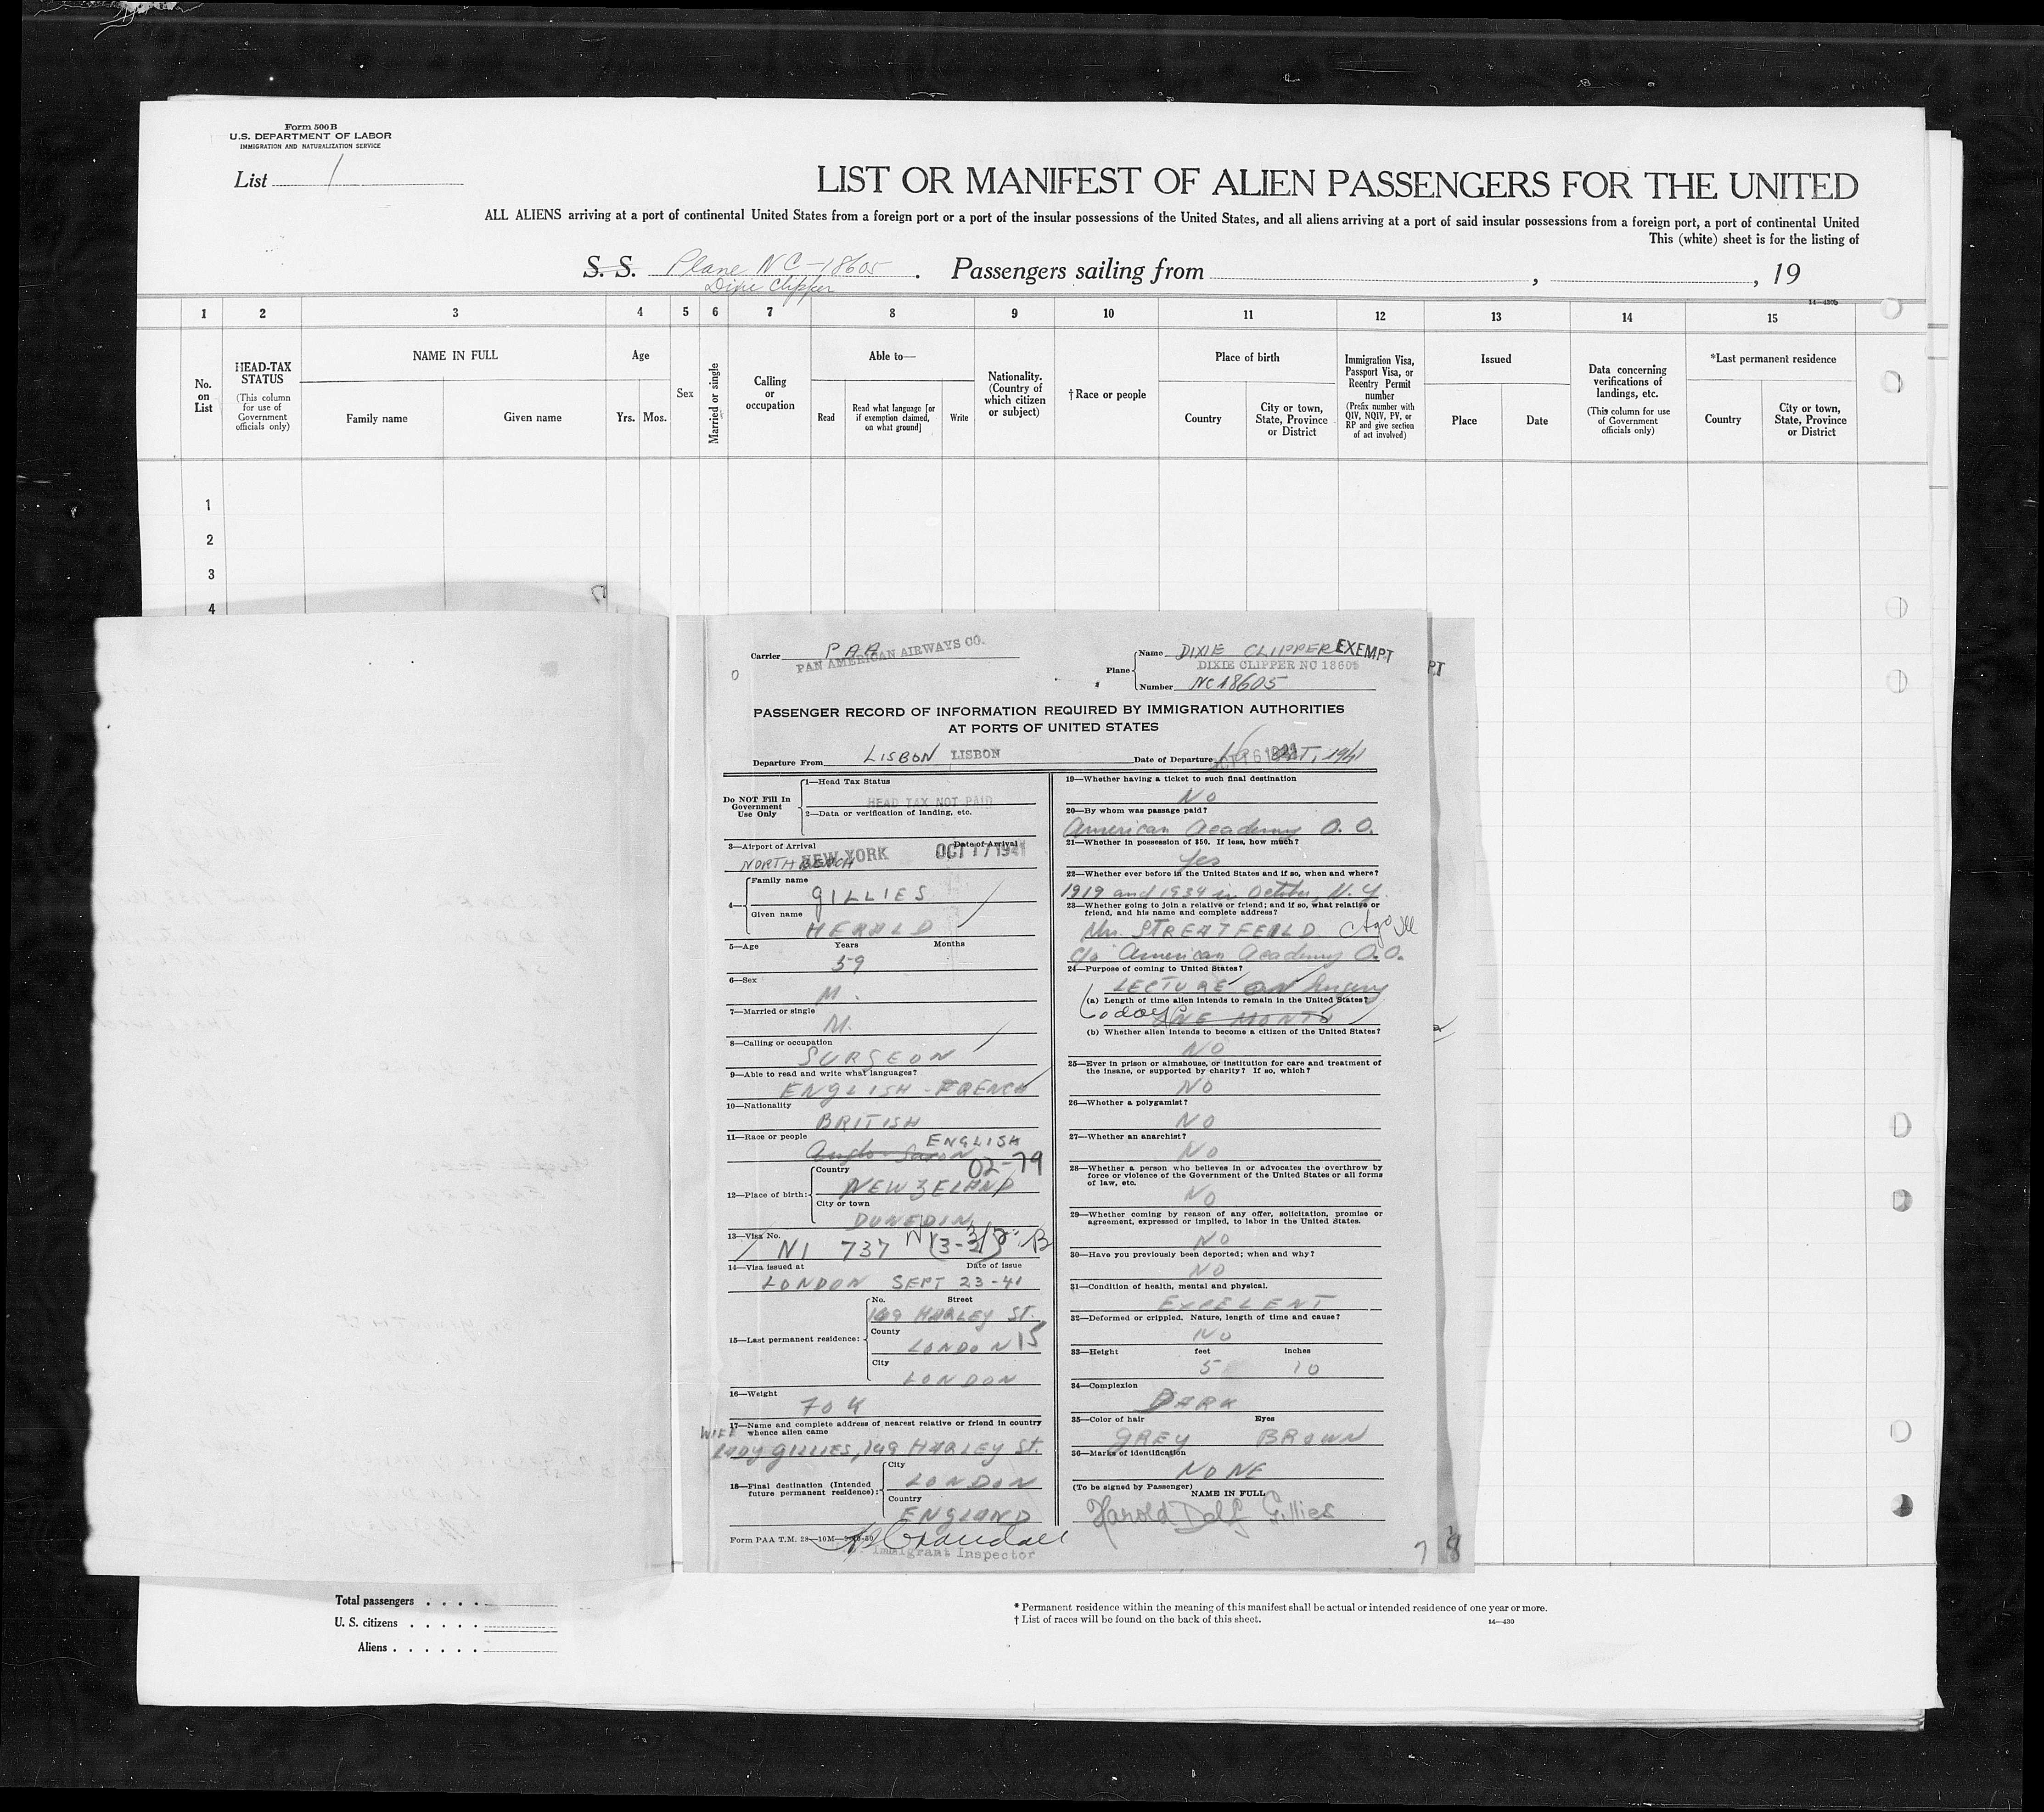 Form 500 B
U.S. DEPARTMENT OF LABOR
IMMIGRATION AND NATURALIZATION SERVICE
List 1
LIST OR MANIFEST OF ALIEN PASSENGERS FOR THE UNITED
ALL ALIENS arriving at a port of continental United States from a foreign port or a port of the insular possessions of the United States, and all aliens arriving at a port of said insular possessions from a foreign port, a port of continental United
This (white) sheet is for the listing of
S. S. Plane NC-18605 . Passengers sailing from , , 19
Dixie Clipper
14—430b
1 2 3 4 5 6 7 8 9 10 11 12 13 14 15
No. on List
HEAD-TAX STATUS
(This column for use of Government officials only)
NAME IN FULL
Family name
Given name
Age
Yrs. Mos.
Sex
Married or single
Calling or occupation
Able to—
Read
Read what language [or if exemption claimed, on what ground]
Write
Nationality. (Country of which citizen or subject)
†Race or people
Place of birth
Country
City or town, State, Province or District
Immigration Visa, Passport Visa, or Reentry Permit number
(Prefix number with QIV, NQIV, PV, or RP and give section of act involved)
Issued
Place
Date
Data concerning verifications of landings, etc.
(This column for use of Government officials only)
*Last permanent residence
Country
City or town, State, Province or District
1
2
3
4
Carrier PAA
PAN AMERICAN AIRWAYS CO.
Plane
Name DIXIE CLIPPER
EXEMPT
PT
DIXIE CLIPPER NC 18605
Number NC18605
PASSENGER RECORD OF INFORMATION REQUIRED BY IMMIGRATION AUTHORITIES
AT PORTS OF UNITED STATES
Departure From LISBON LISBON
Date of Departure 16 OCT, 1941
Do NOT Fill In Government Use Only
1—Head Tax Status
HEAD TAX NOT PAID
2—Data or verification of landing, etc.
3—Airport of Arrival Date of Arrival
NORTH BEACH NEW YORK OCT 17 1941
4—
Family name
GILLIES
Given name
HERALD
5—Age Years Months
59
6—Sex
M.
7—Married or single
M.
8—Calling or occupation
SURGEON
9—Able to read and write what languages?
ENGLISH - FRENCH
10—Nationality
BRITISH
11—Race or people ENGLISH
Anglo-Saxon
02-79
12—Place of birth:
Country
NEW ZELAND
City or town
DUNEDIN
13—Visa No.
NI 737
14—Visa issued at Date of issue
LONDON SEPT 23-41
15—Last permanent residence:
No. Street
149 HARLEY ST.
County
LONDON 15
City
LONDON
16—Weight
70 K
17—Name and complete address of nearest relative or friend in country whence alien came
WIFE
LADY GILLIES, 149 HARLEY St.
18—Final destination (Intended future permanent residence):
City
LONDON
Country
ENGLAND
Form PAA T.M. 28—10M
Crandall
Immigrant Inspector
19—Whether having a ticket to such final destination
NO
20—By whom was passage paid?
American Academy O. O.
21—Whether in possession of $50. If less, how much?
Yes
22—Whether ever before in the United States and if so, when and where?
1919 and 1934 in October, N.Y.
23—Whether going to join a relative or friend; and if so, what relative or friend, and his name and complete address?
STREATFEILD
c/o American Academy O.O.
24—Purpose of coming to United States?
LECTURE on Surgery
(a) Length of time alien intends to remain in the United States?
60 days ONE MONTH
(b) Whether alien intends to become a citizen of the United States?
NO
25—Ever in prison or almshouse, or institution for care and treatment of the insane, or supported by charity? If so, which?
NO
26—Whether a polygamist?
NO
27—Whether an anarchist?
NO
28—Whether a person who believes in or advocates the overthrow by force or violence of the Government of the United States or all forms of law, etc.
NO
29—Whether coming by reason of any offer, solicitation, promise or agreement, expressed or implied, to labor in the United States.
NO
30—Have you previously been deported; when and why?
NO
31—Condition of health, mental and physical.
EXCELENT
32—Deformed or crippled. Nature, length of time and cause?
NO
33—Height feet inches
5 10
34—Complexion
DARK
35—Color of hair Eyes
GREY BROWN
36—Marks of identification
NONE
(To be signed by Passenger)
NAME IN FULL
Harold Delf Gillies
7 8
Total passengers . . . .
U. S. citizens . . . . .
Aliens . . . . . .
* Permanent residence within the meaning of this manifest shall be actual or intended residence of one year or more.
† List of races will be found on the back of this sheet.
14—430